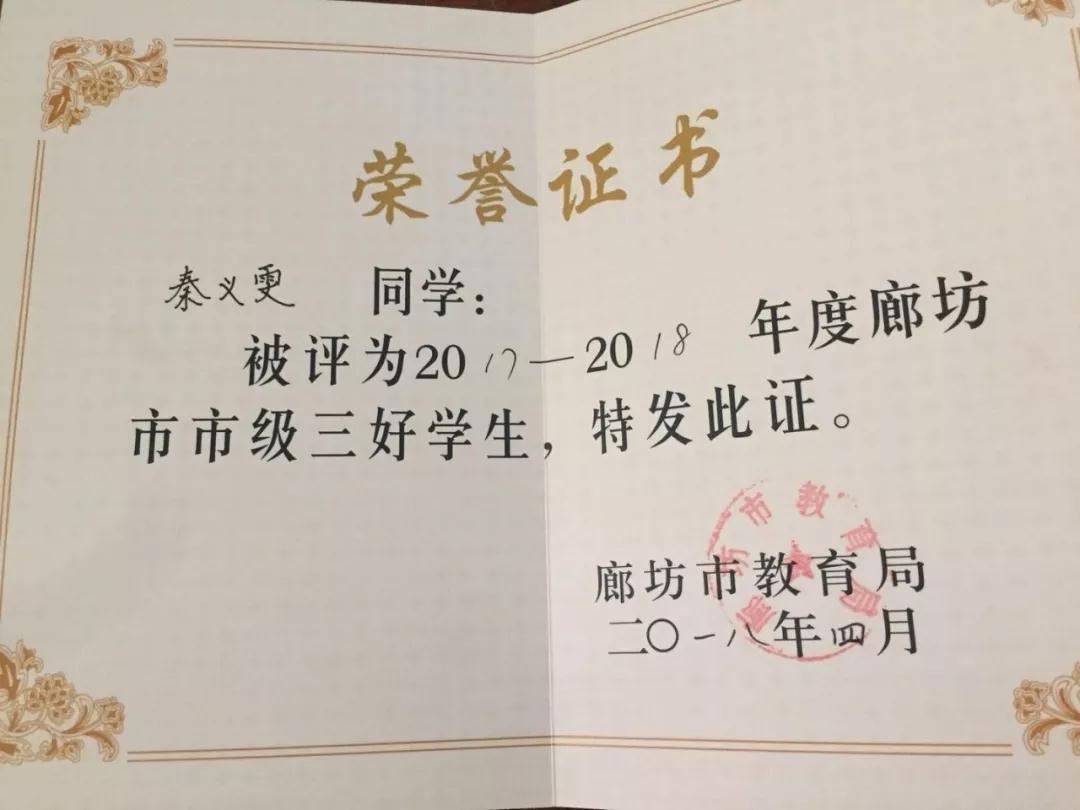 荣誉证书
秦义雯 同学：
被评为2017—2018 年度廊坊
市市级三好学生，特发此证。
廊坊市教育局
廊坊市教育局
二〇一八年四月